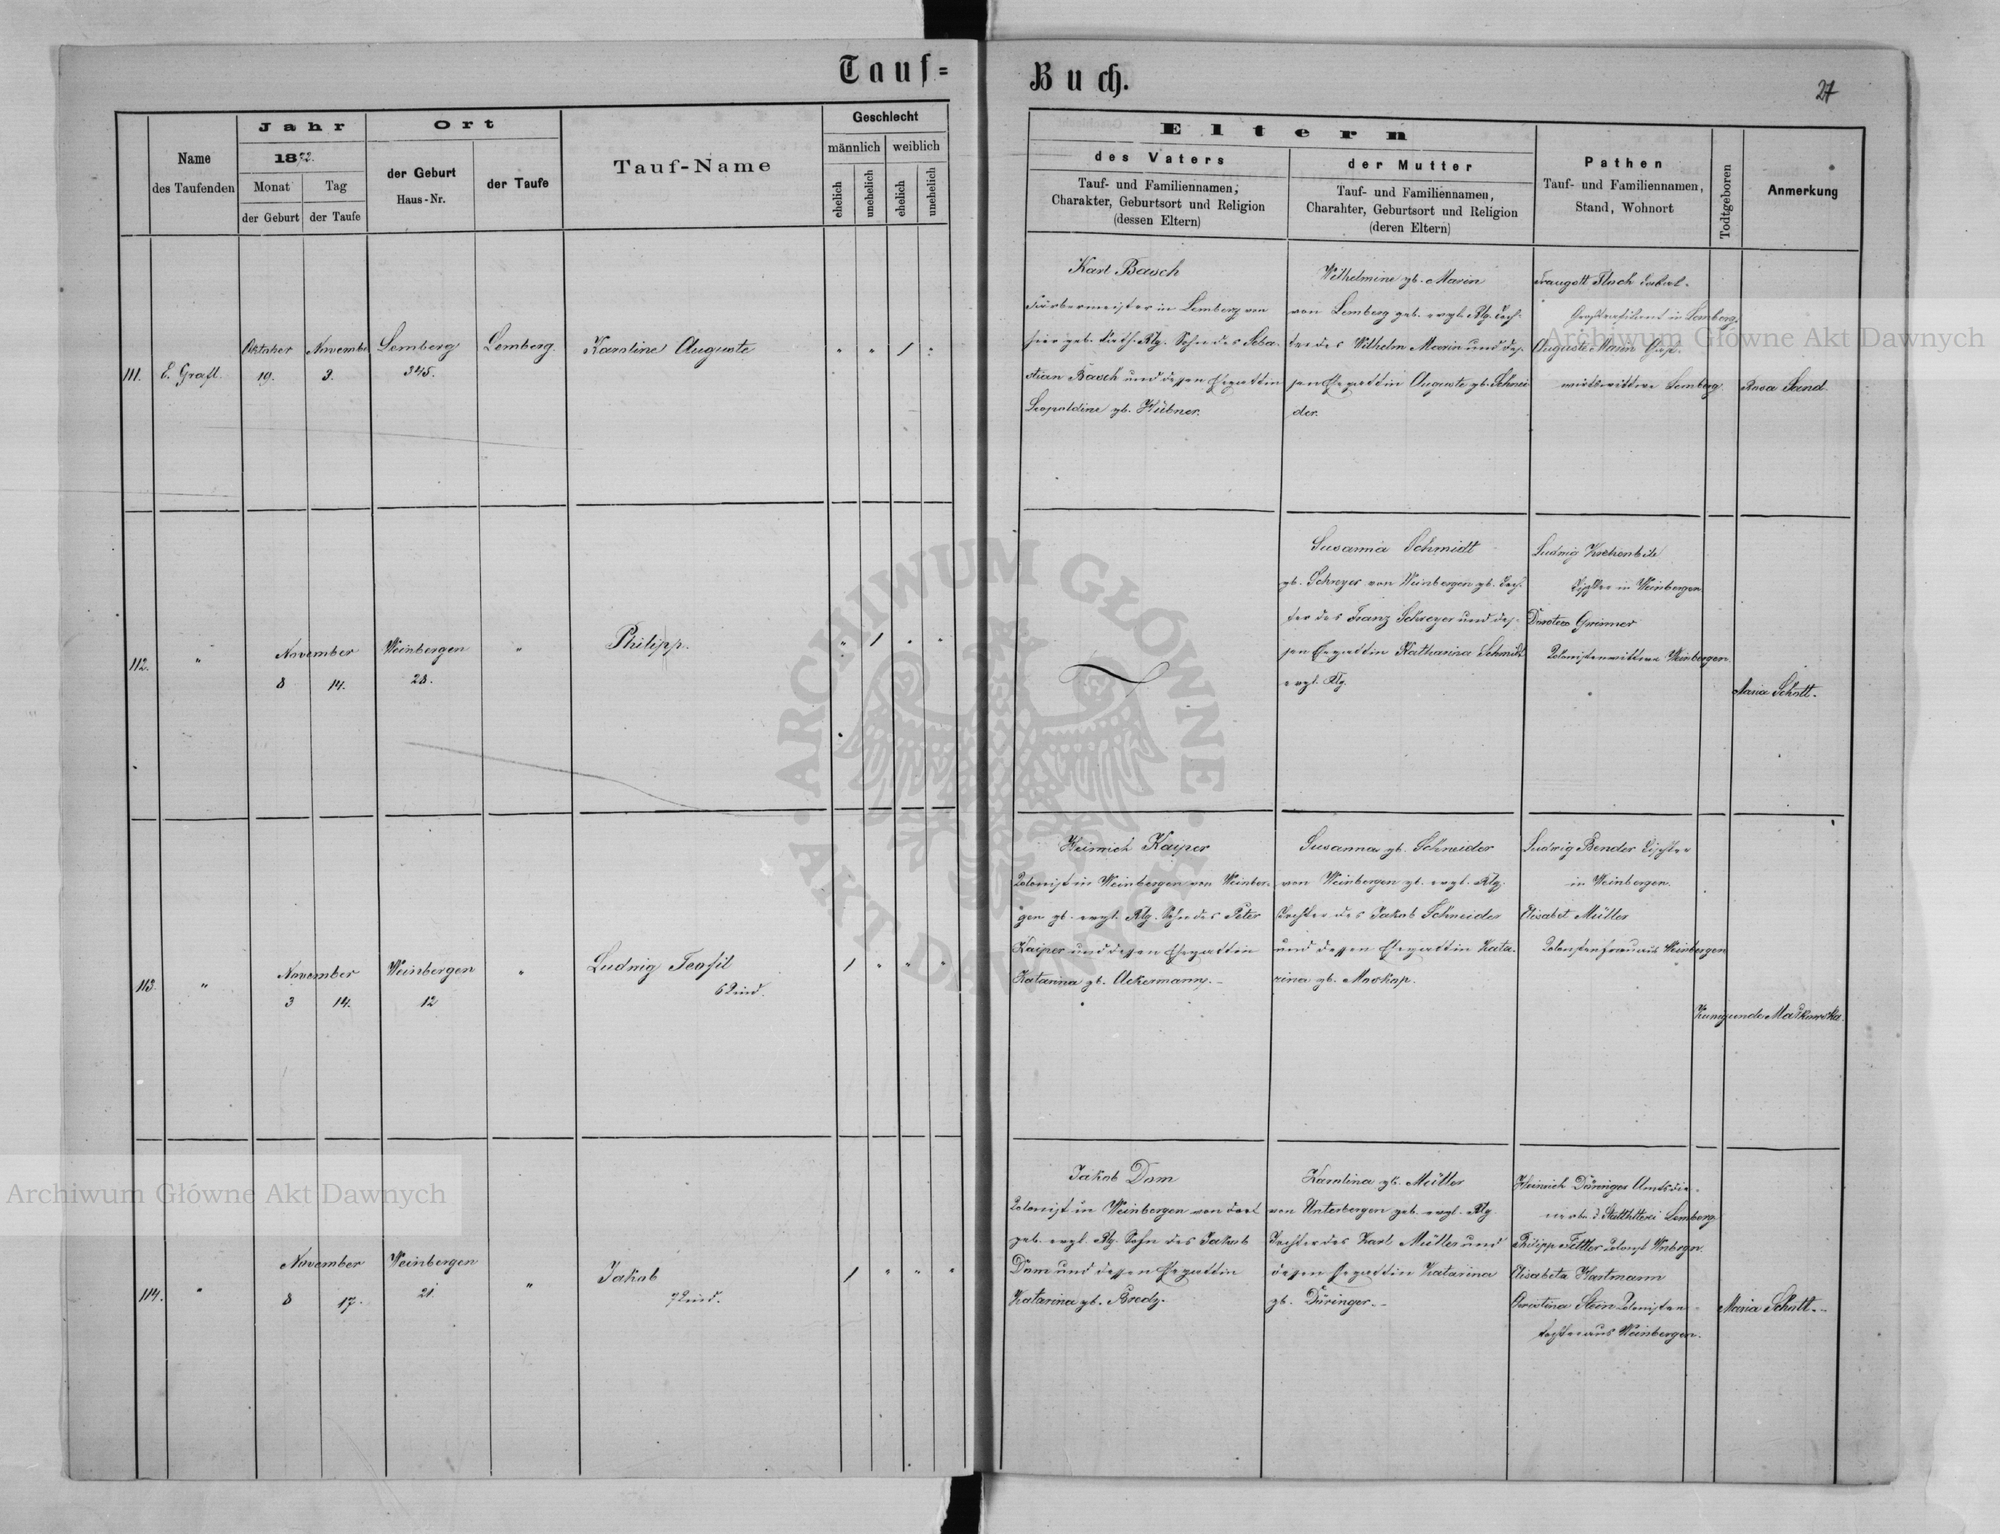 Tauf=
Buch.
27
Name
des Taufenden
Jahr
1873.
Monat
der Geburt
Tag
der Taufe
Ort
der Geburt
Haus-Nr.
der Taufe
Tauf-Name
Geschlecht
männlich
weiblich
ehelich
unehelich
ehelich
unehelich
Eltern
des Vaters
Tauf- und Familiennamen,
Charakter, Geburtsort und Religion
(dessen Eltern)
der Mutter
Tauf- und Familiennamen,
Charahter, Geburtsort und Religion
(deren Eltern)
Pathen
Tauf- und Familiennamen,
Stand, Wohnort
Todtgeboren
Anmerkung
111.
E. Grafl
Oktober
19.
November
3.
Lemberg
345.
Lemberg.
Karoline Auguste
Karl Basch
Färbermeister in Lemberg von
hier geb. kath. Rlg. Sohn des Seba-
stian Basch und dessen Ehegattin
Leopoldine gb. Hübner.
Wilhelmine gb. Marin
von Lemberg geb. evgl. Rlg. Toch-
ter des Wilhelm Marin und des-
sen Ehegattin Auguste gb. Schnei-
der.
Traugott Fluch
in Lemberg.
Auguste Marin
Lemberg.
Rosa Sand
112.
"
November
8
14.
Weinbergen
28.
"
Philipp.
Susanna Schmidt
gb. Schreyer von Weinbergen gb. Toch-
ter des Franz Schreyer und des-
sen Ehegattin Katharina Schmidt
evgl. Rlg.
Ludwig
Tischler in Weinbergen
Dorotea Greimer
Kolonistenwittwe Weinbergen.
Maria Schott.
113.
"
November
3
14.
Weinbergen
12
"
Ludwig Teofil
6 Kind.
Heinrich Kasper
Kolonist in Weinbergen von Weinber-
gen gb. evgl. Rlg. Sohn des Peter
Kasper und dessen Ehegattin
Katarina gb. Ackermann.
Susanna gb. Schneider
von Weinbergen gb. evgl. Rlg.
Tochter des Jakob Schneider
und dessen Ehegattin Kata-
rina gb. Moskop.
Ludwig Bender Tischler
in Weinbergen.
Elisabet Müller
Kolonistenfrau aus Weinbergen
Kunigunde
114.
"
November
8
17.
Weinbergen
21.
"
Jakob
7 Kind.
Jakob Dam
Kolonist in Weinbergen von dort
geb. evgl. Rlg. Sohn des Jakob
Dam und dessen Ehegattin
Katarina gb. Bredy.
Karolina gb. Müller
von Unterbergen geb. evgl. Rlg.
Tochter des Karl Müller und
dessen Ehegattin Katarina
gb. Düringer.
Heinrich Düringer Amtsdie-
Lemberg
Philipp Fettler Kolonist Wnbergn.
Elisabeta Hartmann
Christina Stein Kolonisten-
töchter aus Weinbergen.
Maria Schott.
Archiwum Główne Akt Dawnych
ARCHIWUM GŁÓWNE · AKT DAWNYCH ·
Archiwum Główne Akt Dawnych